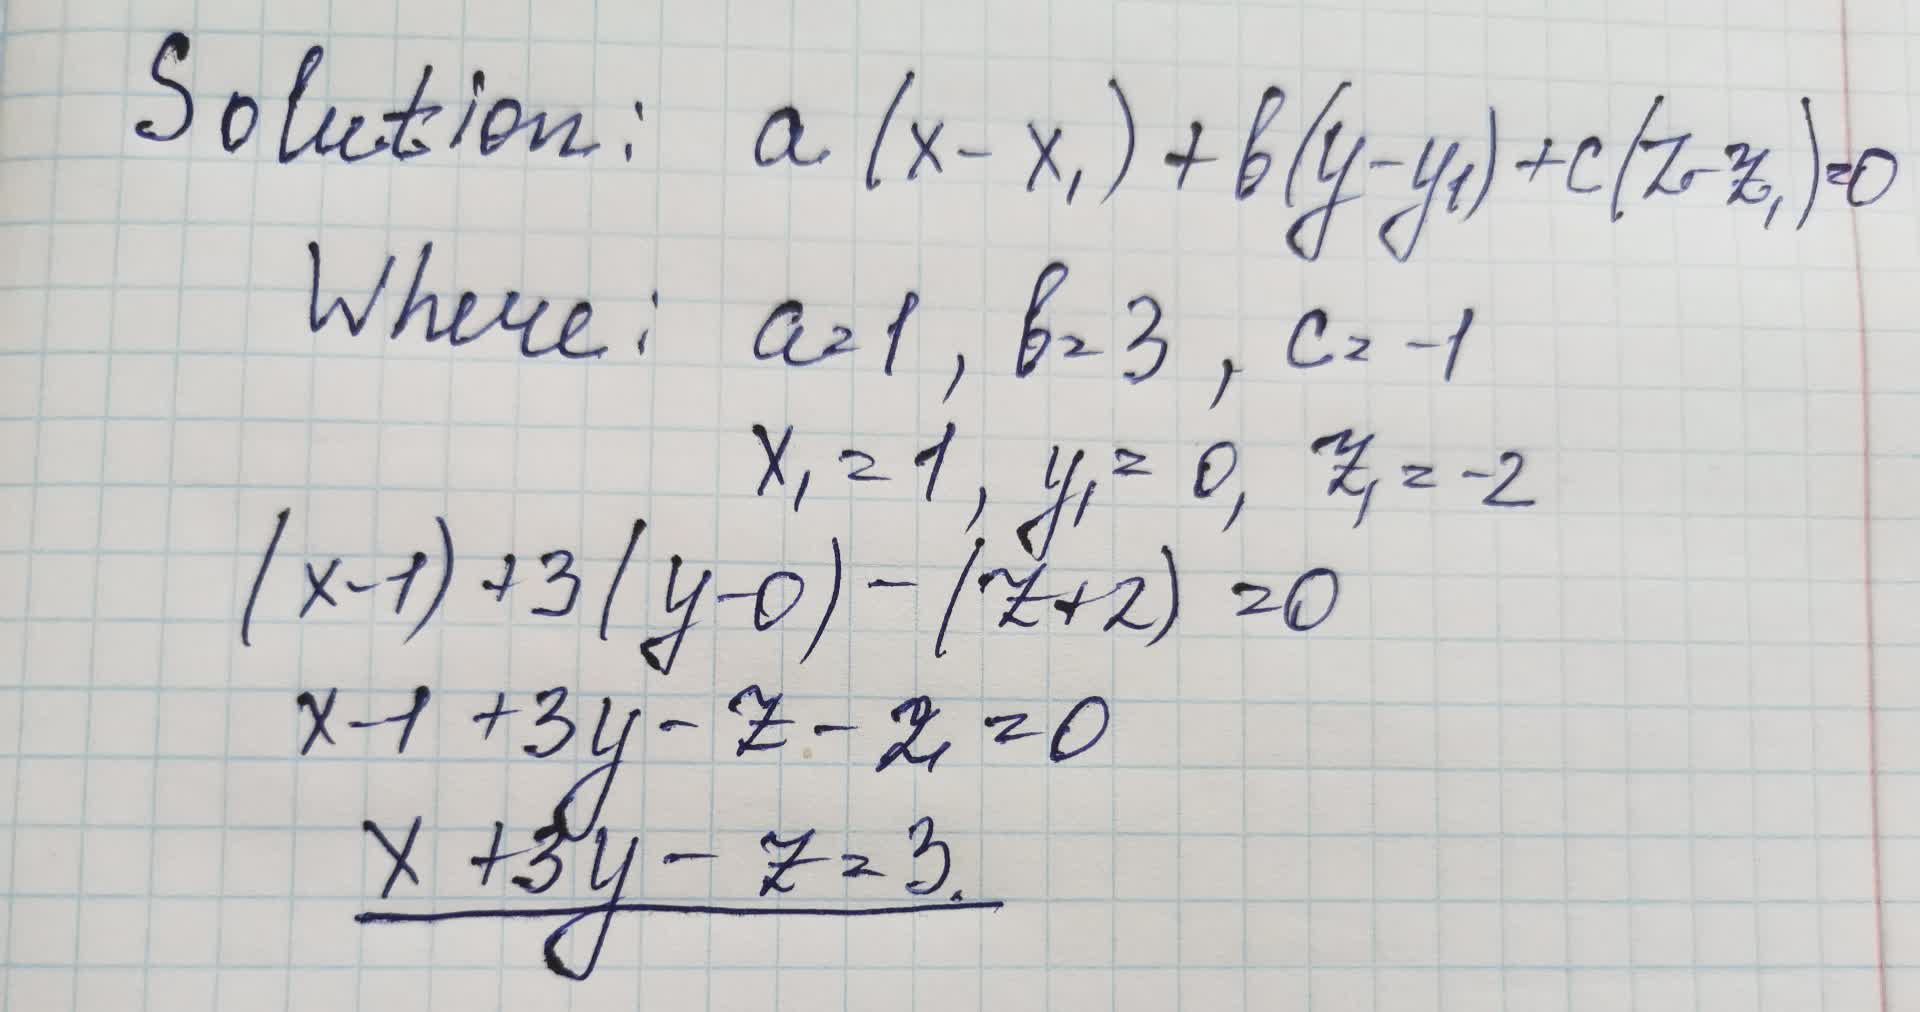 Solution: a(x-x₁)+b(y-y₁)+c(z-z₁)=0
Where: a=1, b=3, c=-1
x₁=1, y₁=0, z₁=-2
(x-1)+3(y-0)-(z+2)=0
x-1+3y-z-2=0
x+3y-z=3.